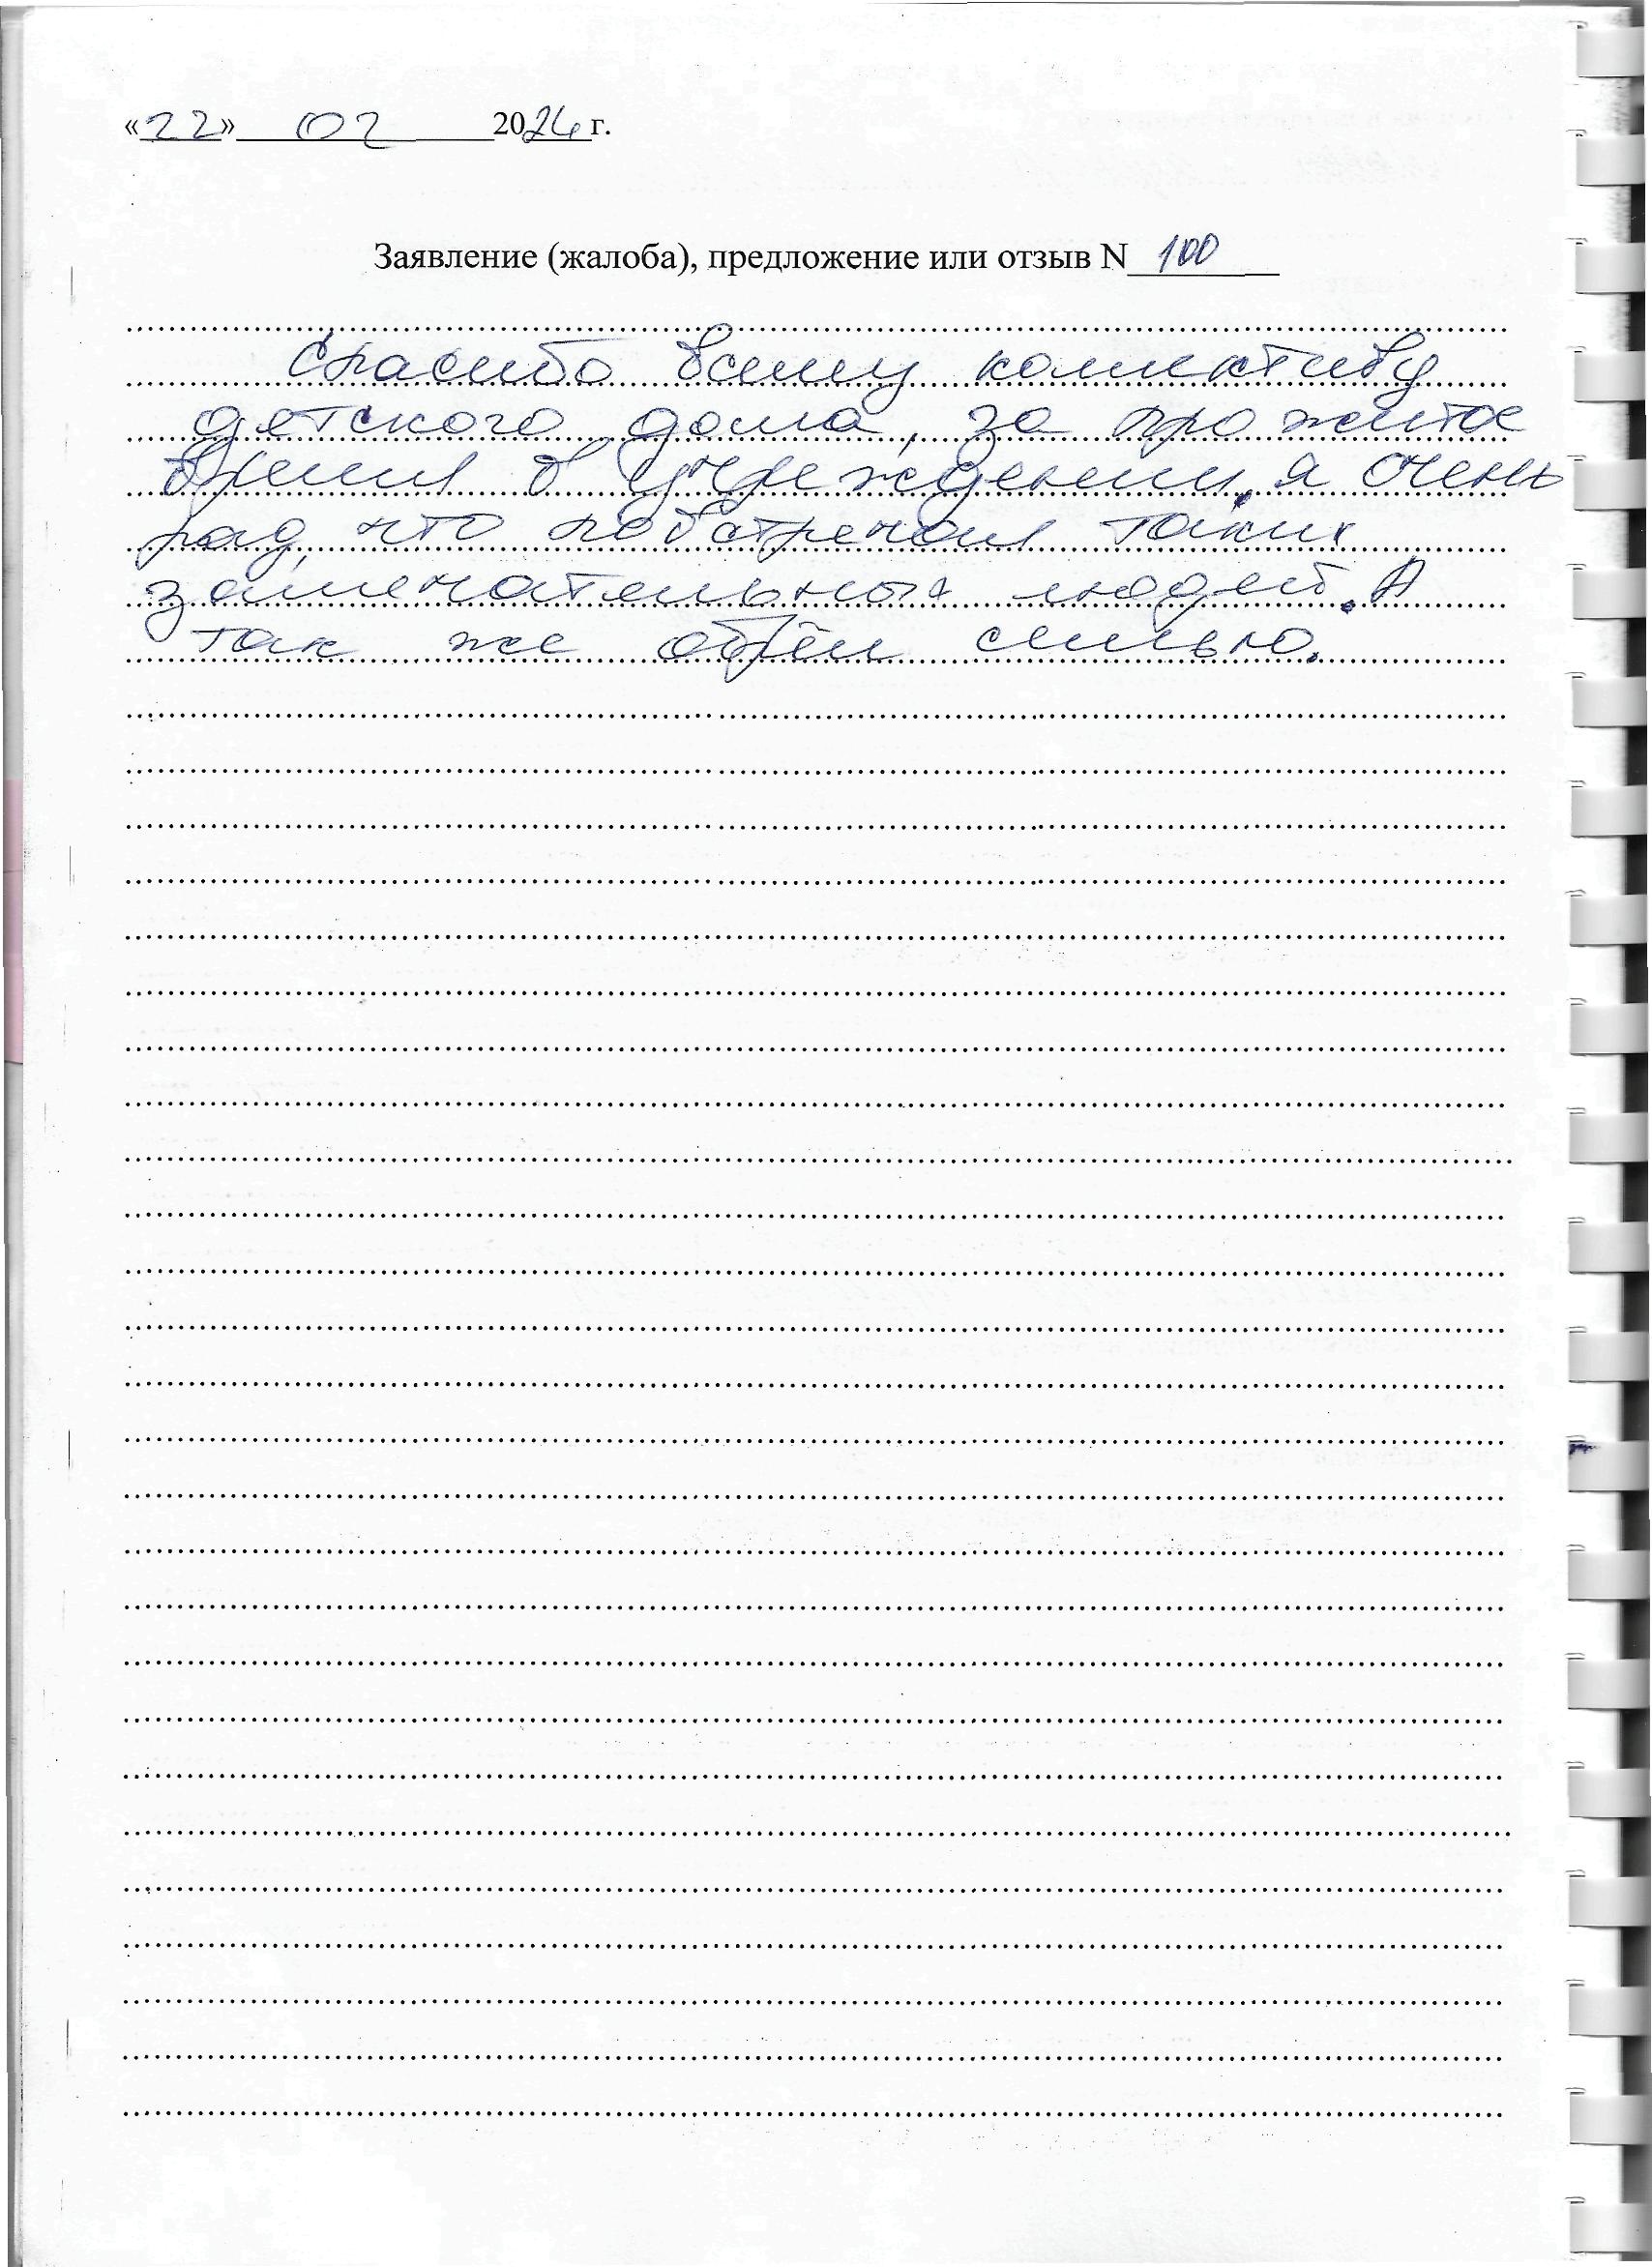 «22» 02 2024 г.
Заявление (жалоба), предложение или отзыв N 100
Спасибо всему колективу
детского дома, за прожитое
время в учреждении, я очень
рад, что повстречал таких
замечательных людей. А
так же обрёл семью.